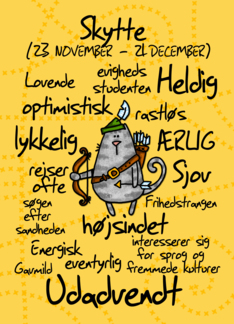 Skytte
(23. NOVEMBER - 21. DECEMBER)
Lovende
evigheds
studenten
Heldig
optimistisk
rastløs
lykkelig
ÆRLIG
rejser
ofte
Sjov
søgen
efter
sandheden
Frihedstrangen
højsindet
Energisk
interesserer sig
for sprog og
fremmede kulturer
Gavmild
eventyrlig
Udadvendt